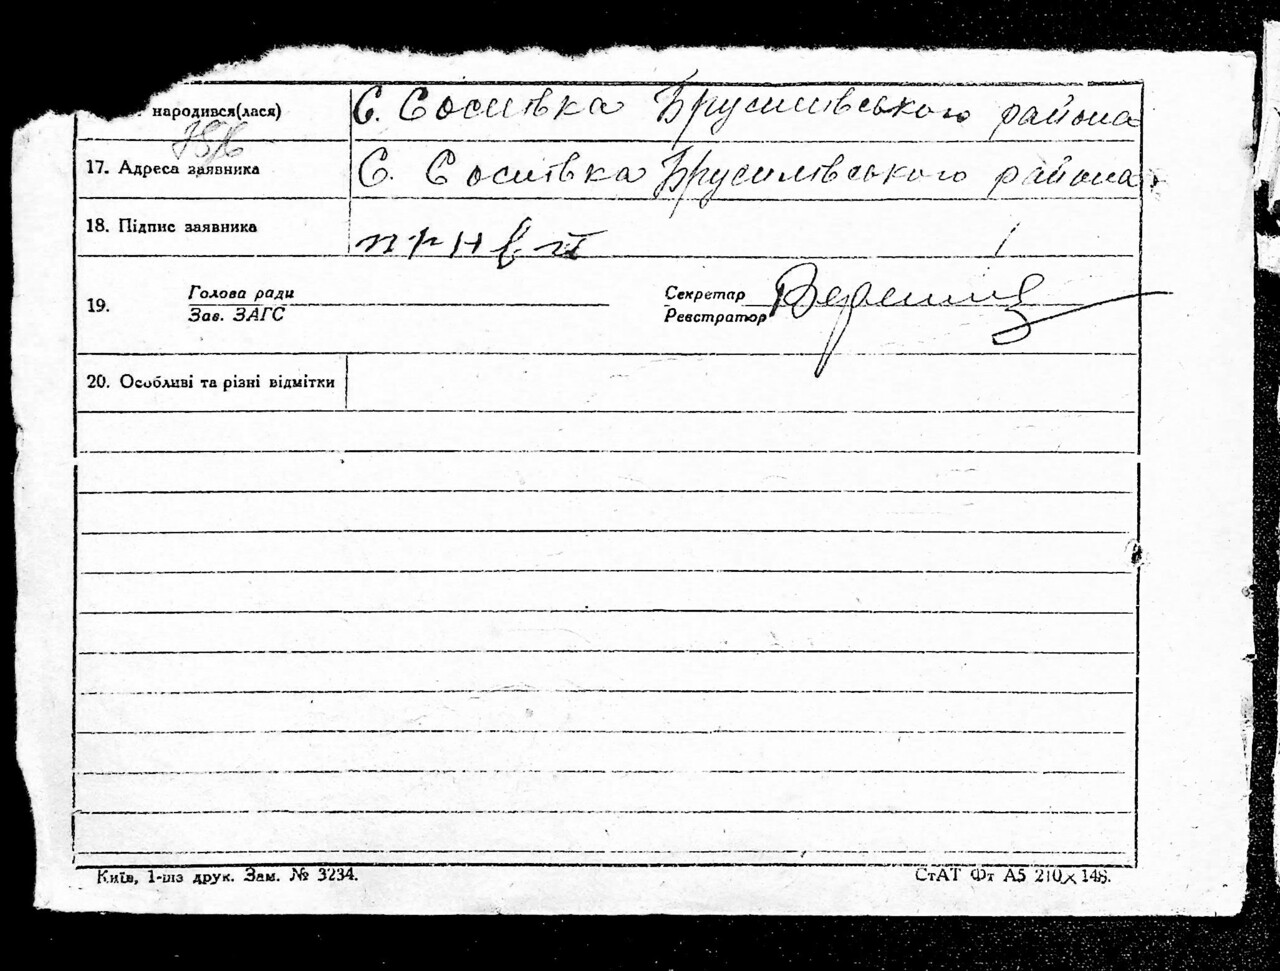 народився(лася) С. Соситвка Брусилівського района
17. Адреса заявника С. Соситвка Брусилівського района
18. Підпис заявника
19. Голова ради Секретар
Зав. ЗАГС Реєстратор
20. Особливі та різні відмітки
Київ, 1-ша друк. Зам. № 3234. СтАТ Фт А5 210×148.